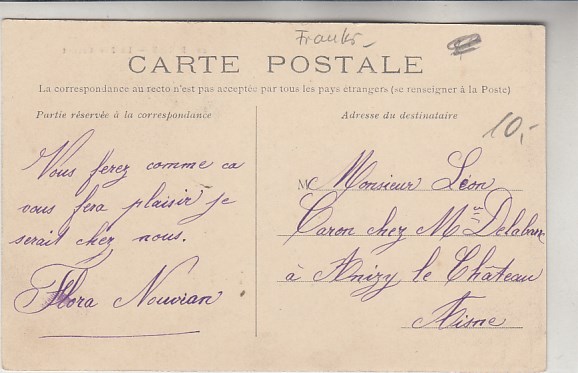 Franko-
CARTE POSTALE
La correspondance au recto n'est pas acceptée par tous les pays étrangers (se renseigner à la Poste)
Partie réservée à la correspondance
Vous ferez comme ca
vous fera plaisir je
serait chez nous.
Flora Nouvian
Adresse du destinataire
10,-
M Monsieur Léon
Caron chez M Delabre
à Anizy le Château
Aisne